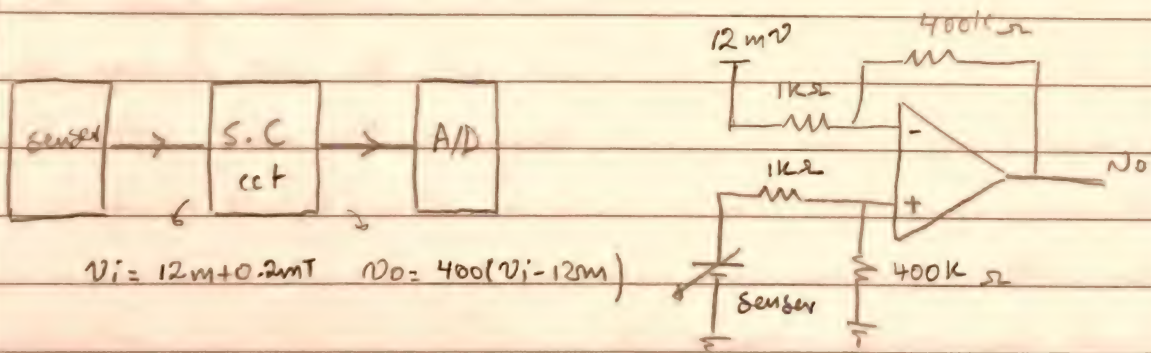 senser
S.C
cct
A/D
Vi = 12m+0.2mT
Vo = 400(Vi-12m)
12mV
400kΩ
1kΩ
-
1kΩ
+
Vo
400kΩ
senser